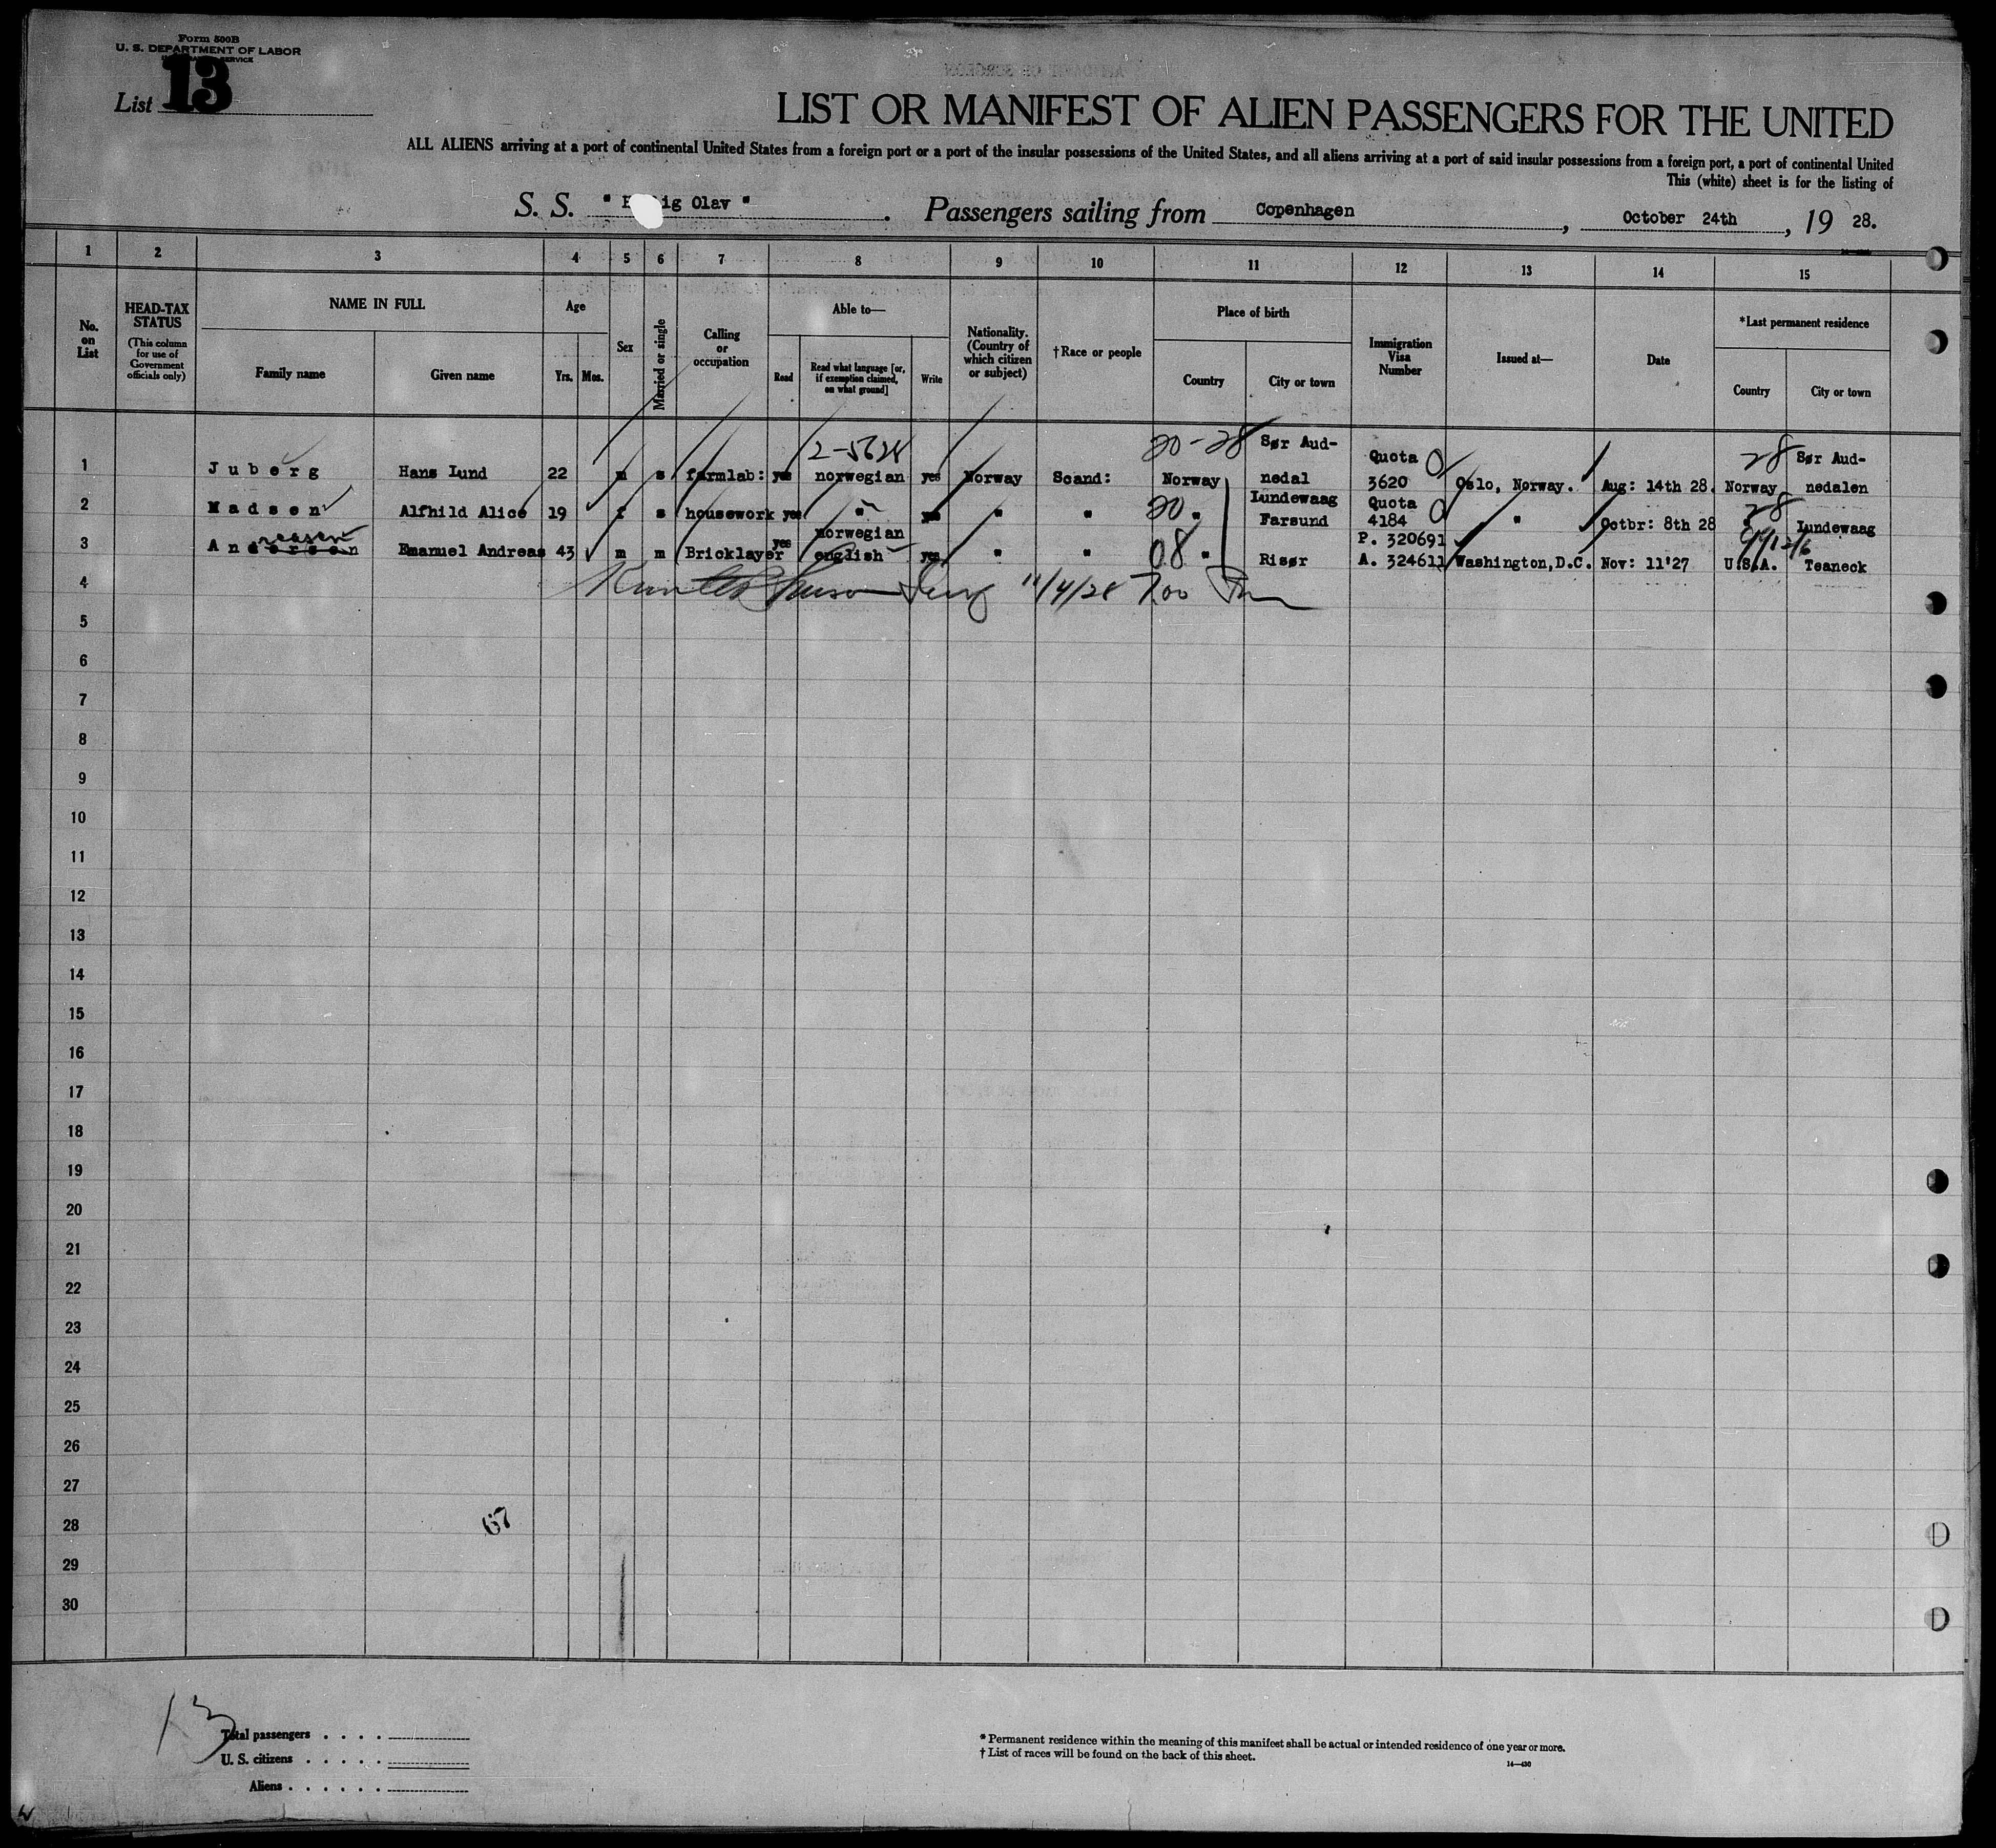 Form 500B
U. S. DEPARTMENT OF LABOR
SERVICE
List 13
LIST OR MANIFEST OF ALIEN PASSENGERS FOR THE UNITED
ALL ALIENS arriving at a port of continental United States from a foreign port or a port of the insular possessions of the United States, and all aliens arriving at a port of said insular possessions from a foreign port, a port of continental United
This (white) sheet is for the listing of
S. S. " ig Olav " . Passengers sailing from Copenhagen , October 24th , 19 28.
1 2 3 4 5 6 7 8 9 10 11 12 13 14 15
No. on List
HEAD-TAX STATUS
(This column for use of Government officials only)
NAME IN FULL
Family name
Given name
Age
Yrs. Mos.
Sex
Married or single
Calling or occupation
Able to—
Read
Read what language [or, if exemption claimed, on what ground]
Write
Nationality. (Country of which citizen or subject)
†Race or people
Place of birth
Country
City or town
Immigration Visa Number
Issued at—
Date
*Last permanent residence
Country
City or town
2-5628 20-28 Sør Aud- Quota 28 Sør Aud-
1 Juberg Hans Lund 22 m s farmlab: yes norwegian yes Norway Scand: Norway nedal 3620 Oslo, Norway. Aug: 14th 28. Norway nedalen
Lundewaag Quota 28
2 Madsen Alfhild Alice 19 f s housework yes " yes " " 20 " Farsund 4184 " Octbr: 8th 28 " Lundewaag
reasen norwegian P. 320691
3 Andersen Emanuel Andreas 43 m m Bricklayer yes english yes " " 08 " Risør A. 324611 Washington,D.C. Nov: 11'27 U.S.A. Teaneck
4 11/4/28 700
5
6
7
8
9
10
11
12
13
14
15
16
17
18
19
20
21
22
23
24
25
26
27
28 67
29
30
13
Total passengers . . . .
U. S. citizens . . . . .
Aliens . . . . . .
* Permanent residence within the meaning of this manifest shall be actual or intended residence of one year or more.
† List of races will be found on the back of this sheet.
14—430